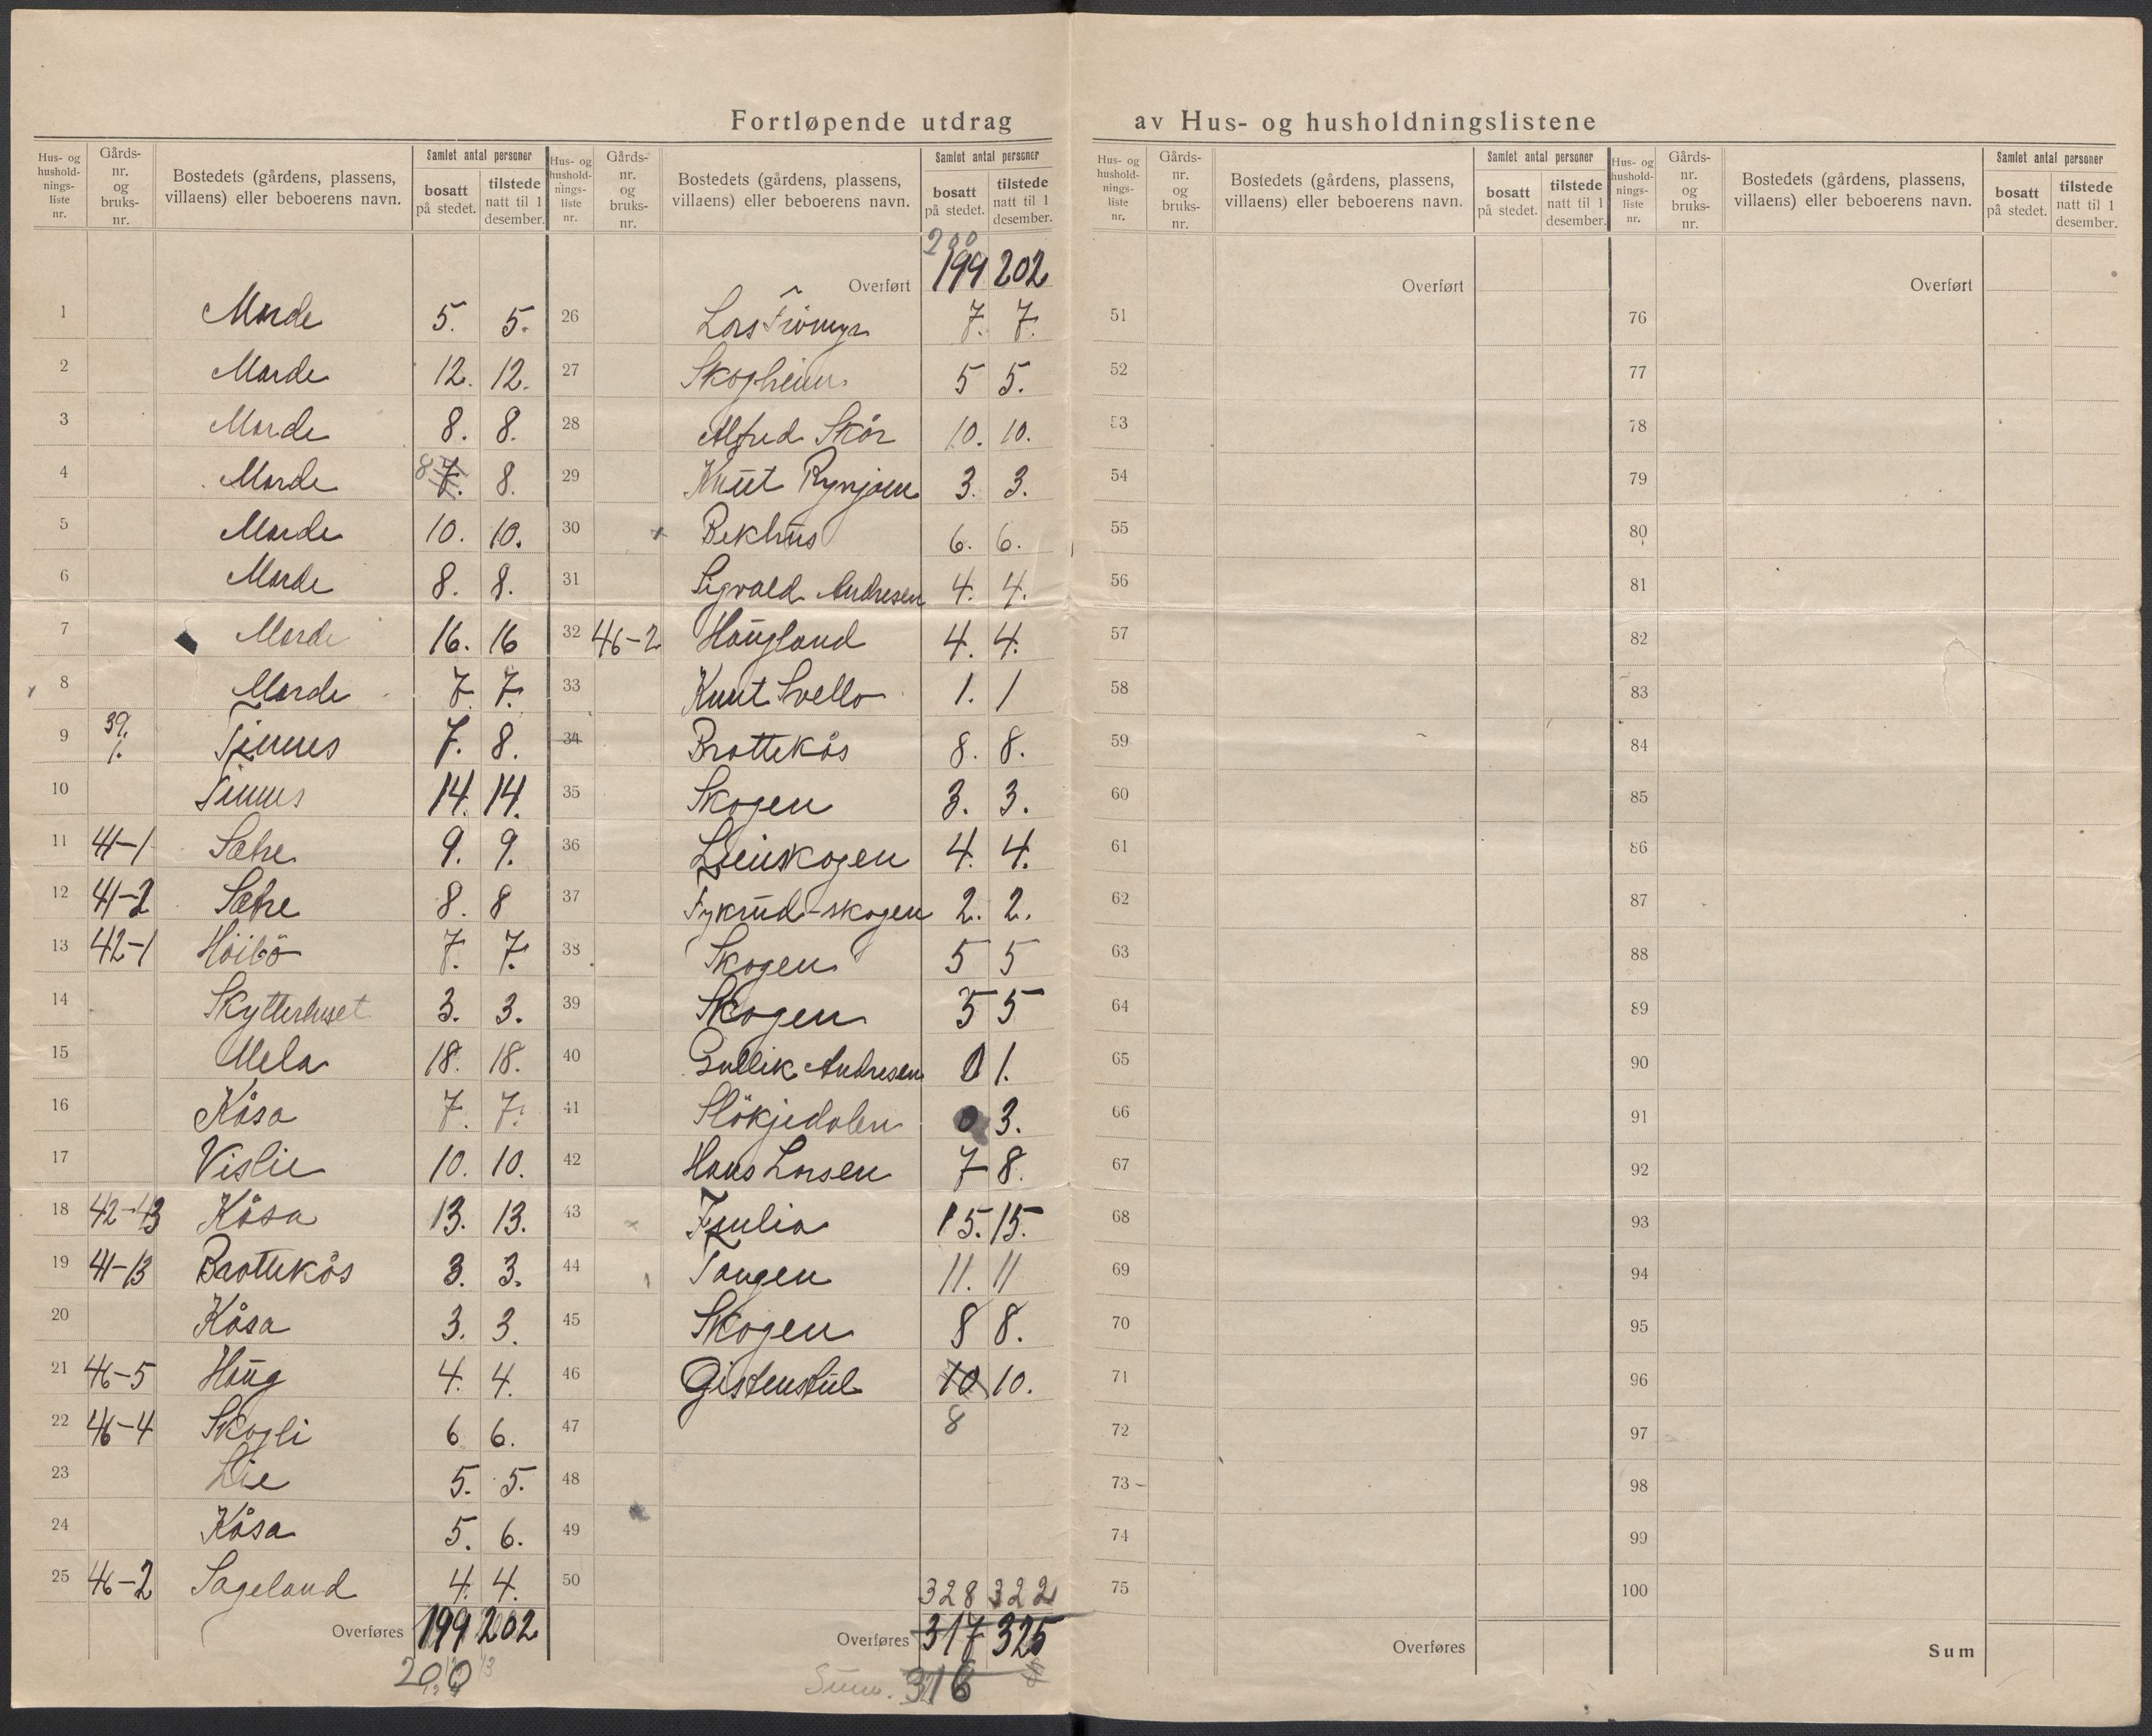 Fortløpende utdrag av Hus- og husholdningslistene
Hus- og hushold-nings-liste nr.
Gårds-nr. og bruks-nr.
Bostedets (gårdens, plassens, villaens) eller beboerens navn.
Samlet antal personer
bosatt på stedet.
tilstede natt til 1 desember.
1 Marde 5. 5.
2 Marde 12. 12.
3 Marde 8. 8.
4 Marde 8 7. 8.
5 Marde 10. 10.
6 Marde 8. 8.
7 Marde 16. 16
8 Marde 7. 7.
9 39. 1. Tinnes 7. 8.
10 Tinnes 14. 14.
11 41-1 Sætre 9. 9.
12 41-2 Sætre 8. 8
13 42-1 Höibö 7. 7.
14 Skytterhuset 3. 3.
15 Mela 18. 18.
16 Kåsa 7. 7.
17 Vislie 10. 10.
18 42-43 Kåsa 13. 13.
19 41-13 Brattekås 3. 3.
20 Kåsa 3. 3.
21 46-5 Haug 4. 4.
22 46-4 Skogli 6 6.
23 Lie 5. 5.
24 Kåsa 5. 6.
25 46-2 Sageland 4. 4.
Overføres 199 202
200
Hus- og hushold-nings-liste nr.
Gårds-nr. og bruks-nr.
Bostedets (gårdens, plassens, villaens) eller beboerens navn.
Samlet antal personer
bosatt på stedet.
tilstede natt til 1 desember.
200
Overført 199 202
26 Lars 7. 7.
27 Skogheim 5 5.
28 Alfred Skår 10. 10.
29 Knut Rynjom 3. 3.
30 Bekhus 6. 6.
31 Sigvald Andresen 4. 4.
32 46-2 Haugland 4. 4.
33 Knut Svello 1. 1
34 Brattekås 8. 8.
35 Skogen 3. 3.
36 Lieiskogen 4. 4.
37 Fykrud-skogen 2. 2.
38 Skogen 5 5
39 Skogen 5 5
40 Gullik Andresen 0 1.
41 Slökjedalen 0 3.
42 Hans Larsen 7 8.
43 Fulia 15. 15.
44 Tangen 11. 11
45 Skogen 8 8.
46 Gistenstul 10 10.
47 8
48
49
50
328 322
Overføres 317 325
Sum. 316
Hus- og hushold-nings-liste nr.
Gårds-nr. og bruks-nr.
Bostedets (gårdens, plassens, villaens) eller beboerens navn.
Samlet antal personer
bosatt på stedet.
tilstede natt til 1 desember.
Overført
51
52
53
54
55
56
57
58
59
60
61
62
63
64
65
66
67
68
69
70
71
72
73
74
75
Overføres
Hus- og hushold-nings-liste nr.
Gårds-nr. og bruks-nr.
Bostedets (gårdens, plassens, villaens) eller beboerens navn.
Samlet antal personer
bosatt på stedet.
tilstede natt til 1 desember.
Overført
76
77
78
79
80
81
82
83
84
85
86
87
88
89
90
91
92
93
94
95
96
97
98
99
100
Sum